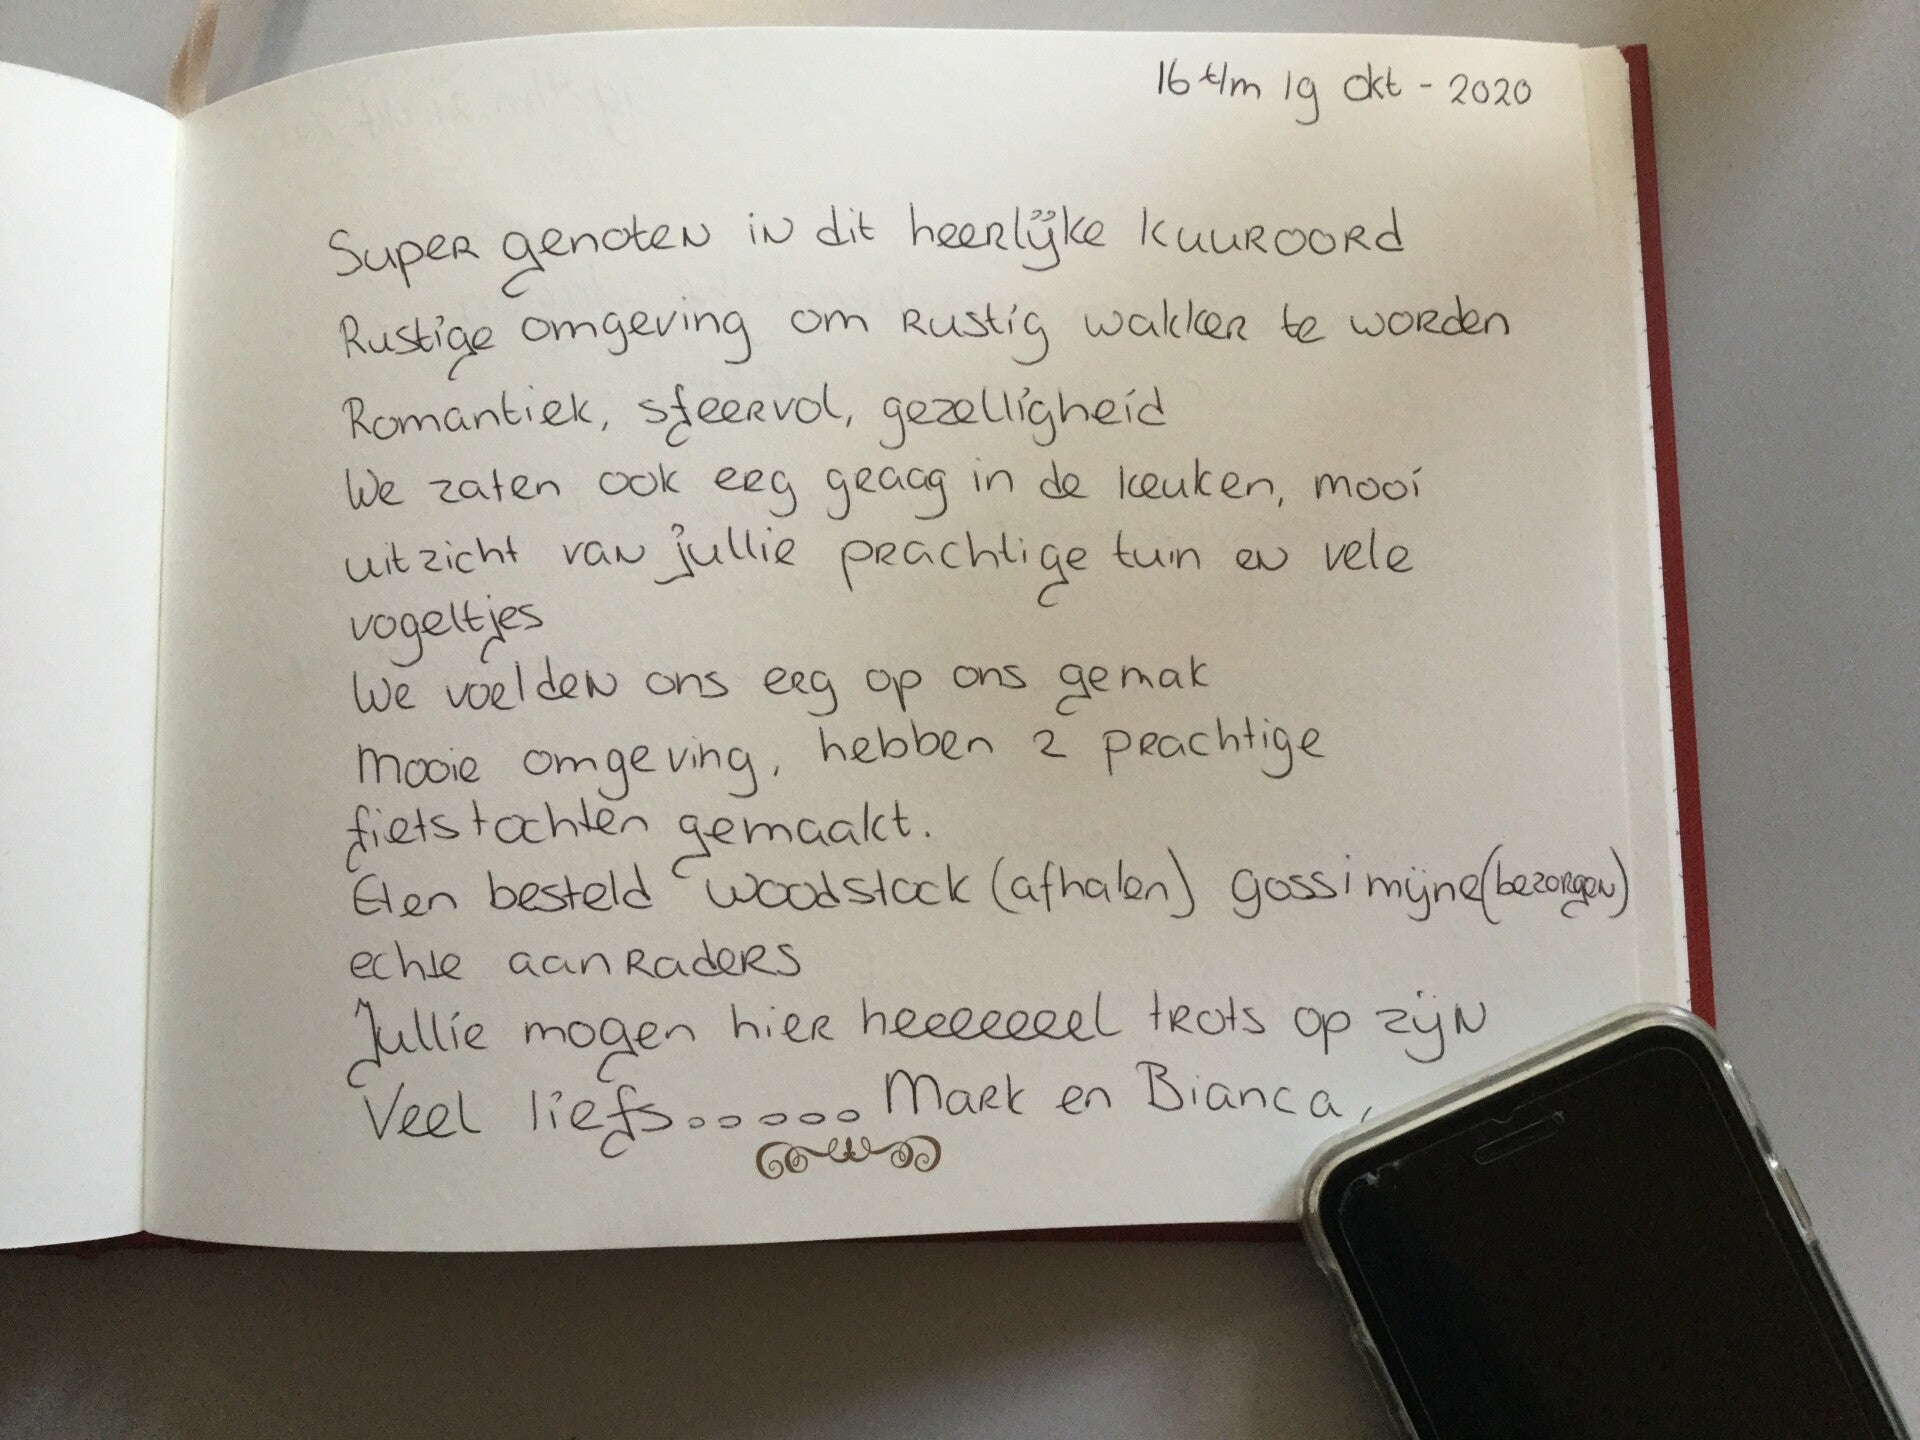 16 t/m 19 okt - 2020
Super genoten in dit heerlijke kuuroord
Rustige omgeving om rustig wakker te worden
Romantiek, sfeervol, gezelligheid
We zaten ook erg graag in de keuken, mooi
uitzicht van jullie prachtige tuin en vele
vogeltjes
We voelden ons erg op ons gemak
Mooie omgeving, hebben 2 prachtige
fietstochten gemaakt.
Eten besteld woodstock (afhalen) gossimijne (bezorgen)
echte aanraders
Jullie mogen hier heeeeeeel trots op zijn
Veel liefs..... Mark en Bianca,